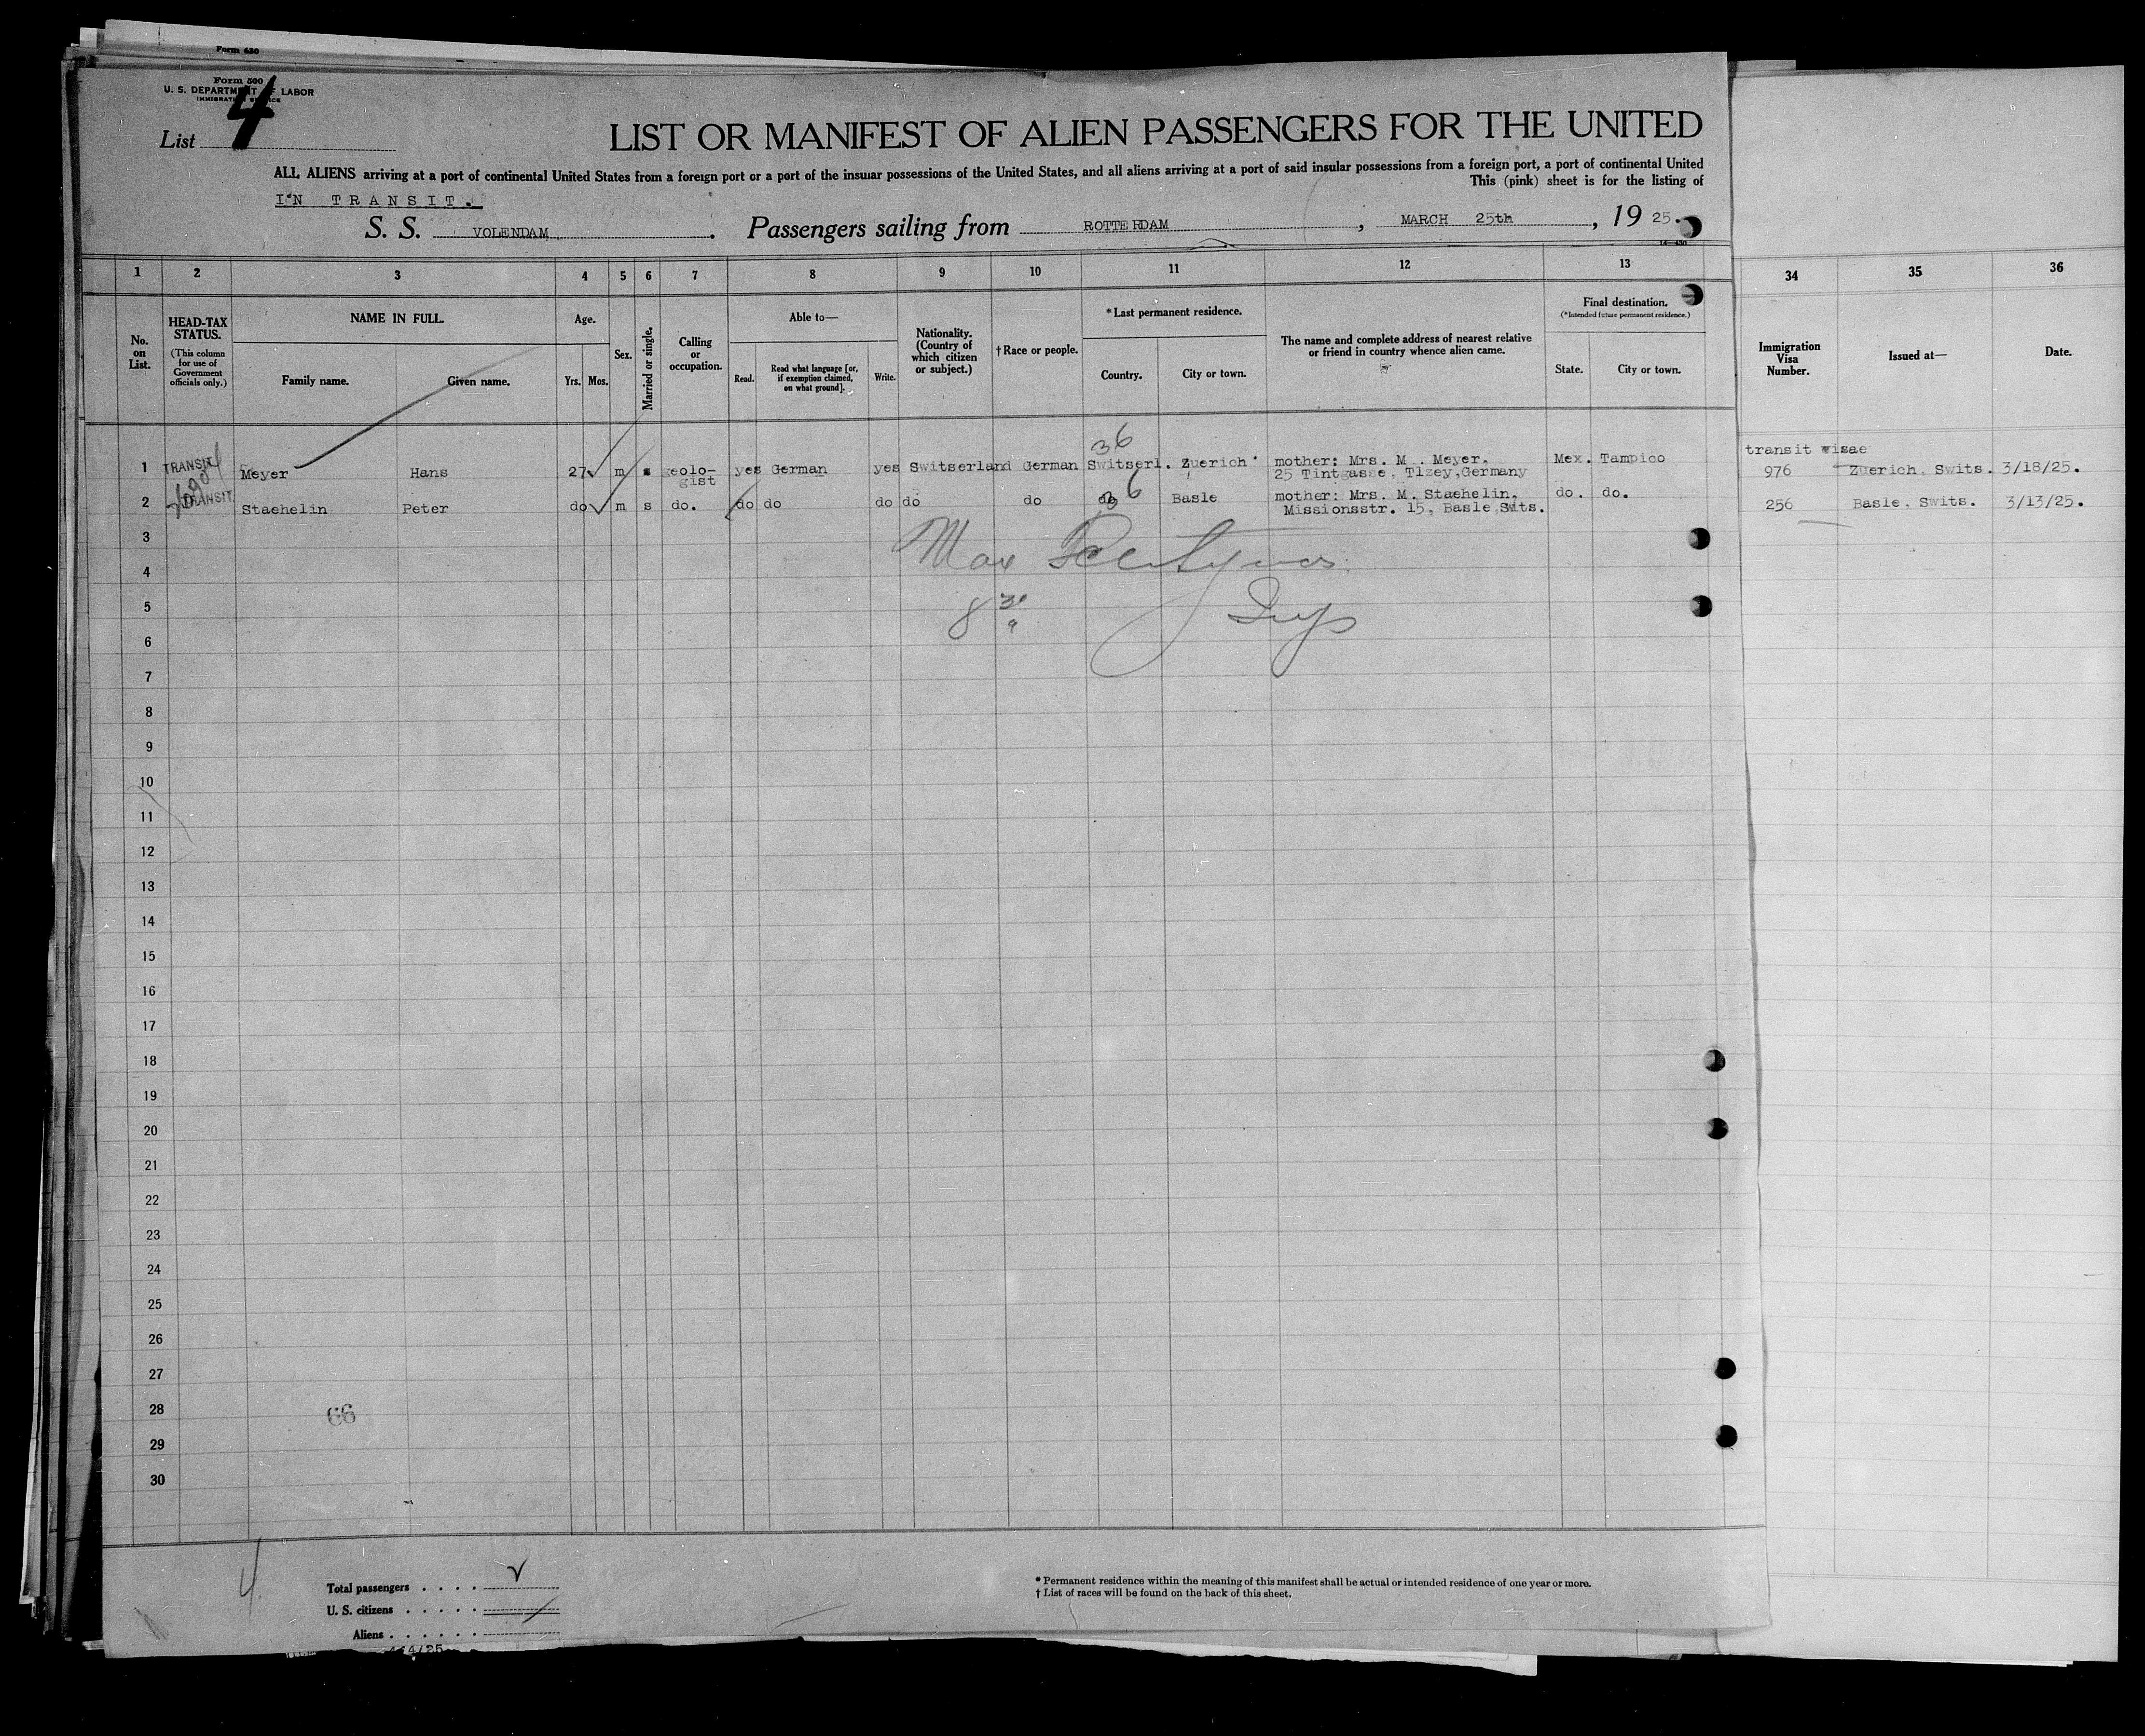 Form 630
Form 500
U. S. DEPARTMENT OF LABOR
IMMIGRATION SERVICE
List 4
LIST OR MANIFEST OF ALIEN PASSENGERS FOR THE UNITED
ALL ALIENS arriving at a port of continental United States from a foreign port or a port of the insular possessions of the United States, and all aliens arriving at a port of said insular possessions from a foreign port, a port of continental United
This (pink) sheet is for the listing of
IN TRANSIT.
S. S. VOLENDAM. Passengers sailing from ROTTERDAM, MARCH 25th, 1925.
1 2 3 4 5 6 7 8 9 10 11 12 13 34 35 36
No. on List.
HEAD-TAX STATUS.
(This column for use of Government officials only.)
NAME IN FULL.
Family name. Given name.
Age.
Yrs. Mos.
Sex.
Married or single.
Calling or occupation.
Able to—
Read. Read what language [or, if exemption claimed, on what ground]. Write.
Nationality. (Country of which citizen or subject.)
†Race or people.
*Last permanent residence.
Country. City or town.
The name and complete address of nearest relative or friend in country whence alien came.
Final destination.
(*Intended future permanent residence.)
State. City or town.
Immigration Visa Number.
Issued at—
Date.
36
transit wisae
1 TRANSIT Meyer Hans 27 m s geolo- yes German yes Switserland German Switserl. Zuerich mother: Mrs. M. Meyer, Mex. Tampico 976 Zuerich, Swits. 3/18/25.
gist 25 Tintgasse, Tlzey,Germany
2 TRANSIT Staehelin Peter do m s do. do do do do do do 36 Basle mother: Mrs. M. Staehelin, do. do. 256 Basle, Swits. 3/13/25.
Missionsstr. 15, Basle Swits.
3
4 Max
5 8 30
6
7
8
9
10
11
12
13
14
15
16
17
18
19
20
21
22
23
24
25
26
27
28 66
29
30
4
Total passengers
U. S. citizens
Aliens
* Permanent residence within the meaning of this manifest shall be actual or intended residence of one year or more.
† List of races will be found on the back of this sheet.